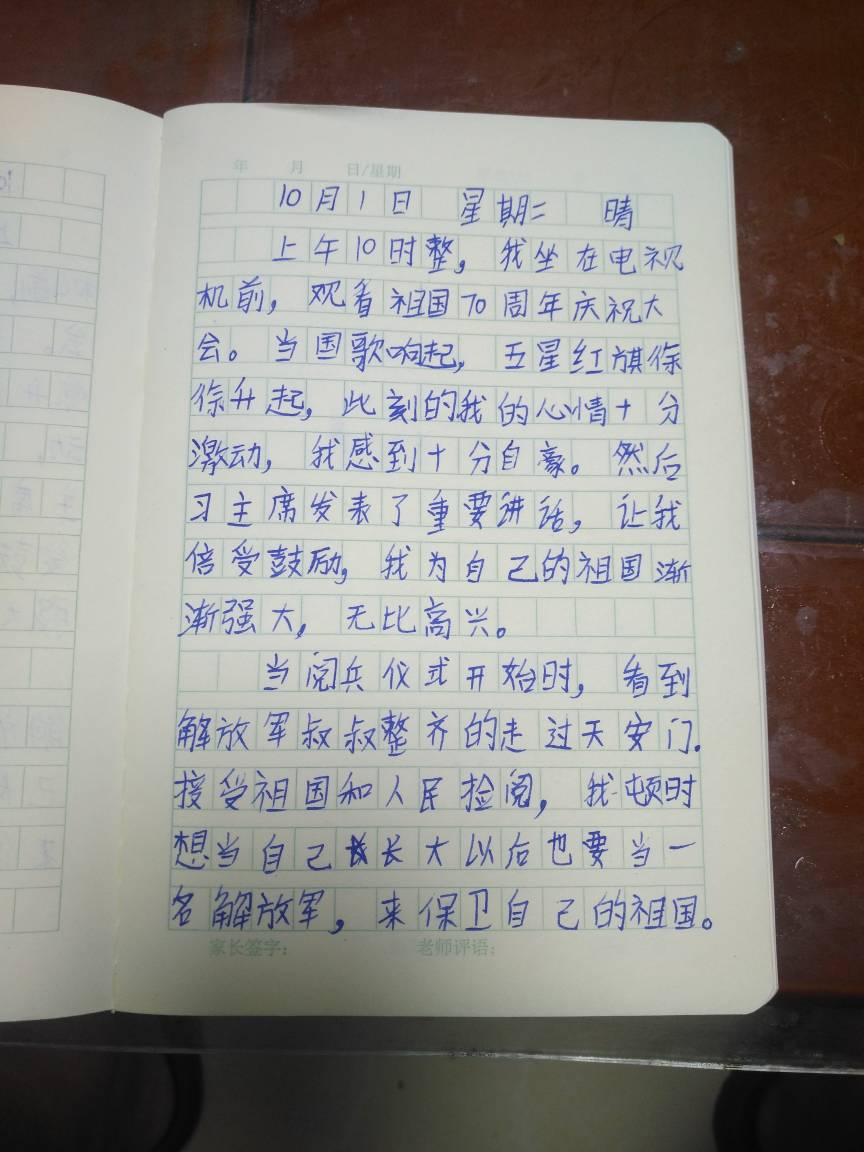 年 月 日/星期
10月1日 星期二 晴
上午10时整，我坐在电视
机前，观看祖国70周年庆祝大
会。当国歌响起，五星红旗徐
徐升起，此刻的我的心情十分
激动，我感到十分自豪。然后
习主席发表了重要讲话，让我
倍受鼓励，我为自己的祖国渐
渐强大，无比高兴。
当阅兵仪式开始时，看到
解放军叔叔整齐的走过天安门.
接受祖国和人民捡阅，我顿时
想当自己长大以后也要当一
名解放军，来保卫自己的祖国。
家长签字： 老师评语：